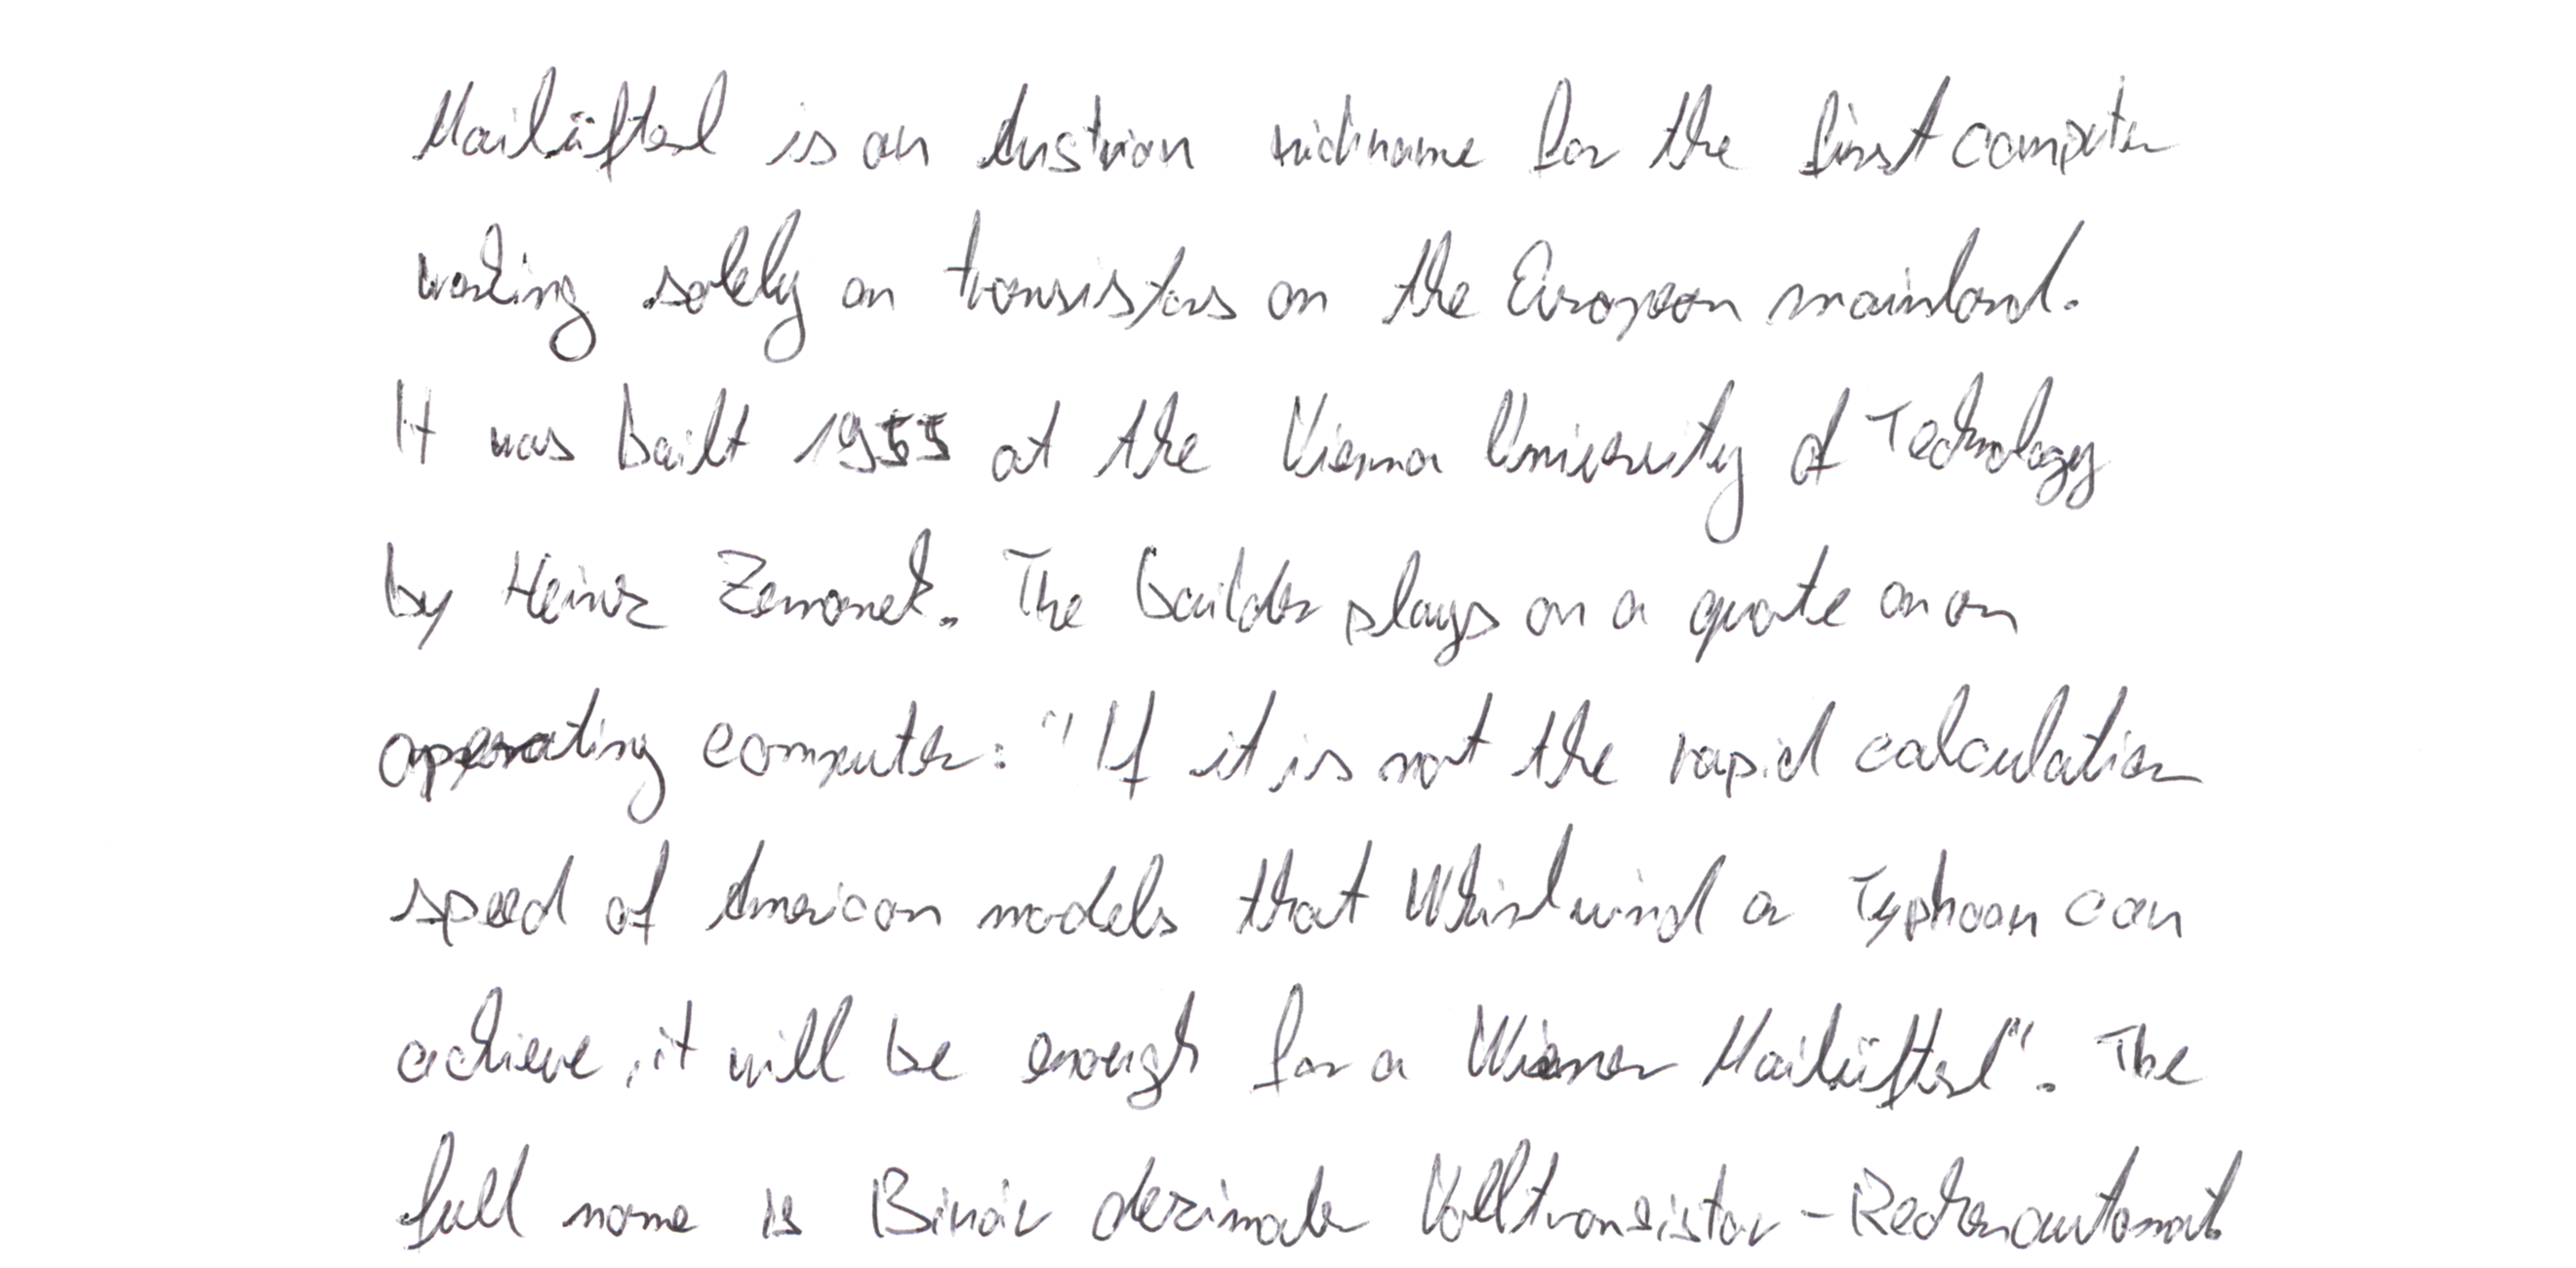 Mailüfterl is an Austrian nickname for the first computer
working solely on transistors on the European mainland.
It was built 1955 at the Vienna University of Technology
by Heinz Zemanek. The builder plays on a quote on an
operating computer: "If it is not the rapid calculation
speed of American models that Whirlwind or Typhoon can
achieve, it will be enough for a Wiener Mailüfterl". The
full name is Binär dezimaler Volltransistor-Rechenautomat